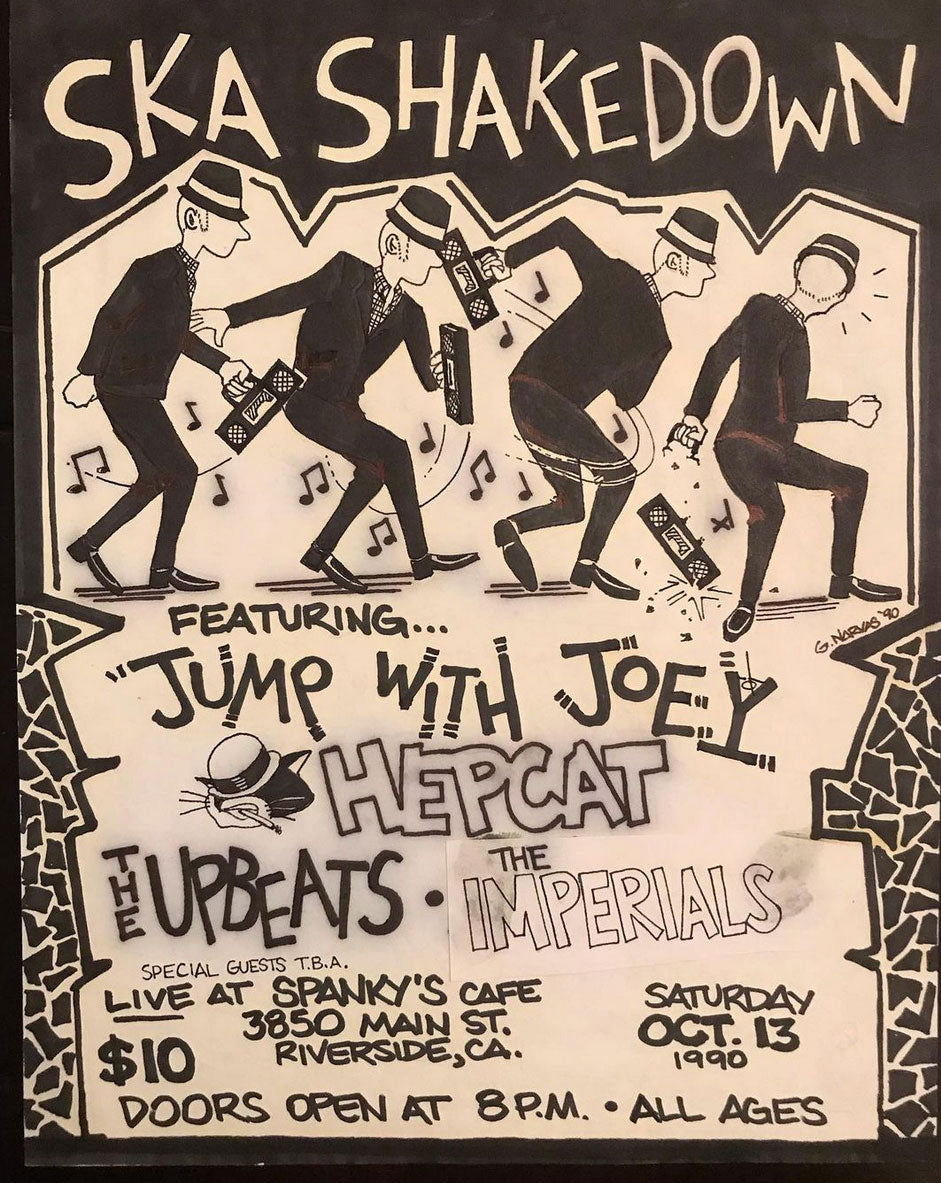 SKA SHAKEDOWN
G. NARVAS '90
FEATURING...
"JUMP WITH JOEY
HEPCAT
THE UPBEATS • THE IMPERIALS
SPECIAL GUESTS T.B.A.
LIVE AT SPANKY'S CAFE
3850 MAIN ST.
RIVERSIDE, CA.
$10
SATURDAY
OCT. 13
1990
DOORS OPEN AT 8 P.M. • ALL AGES